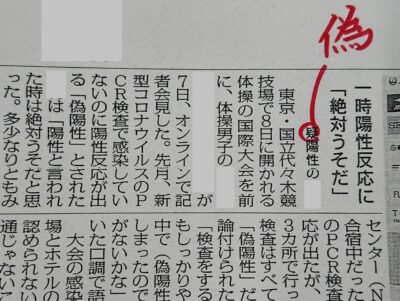 偽
一時陽性反応に
「絶対うそだ」
疑陽性の
東京・国立代々木競
技場で8日に開かれる
体操の国際大会を前
に、体操男子の
が
7日、オンラインで記
者会見した。先月、新
型コロナウイルスのP
CR検査で感染してい
ないのに陽性反応が出
る「偽陽性」とされた
は「陽性と言われ
た時は絶対うそだと思
った。多少なりともみ
センター(N
合宿中だった
のPCR検査
応が出たが、
3カ所で行っ
検査はすべて
「偽陽性」だ
論付けられた
「検査をする
もしっかりや
中で「偽陽性
しまったので
がないかな」
いた口調で語
大会の感染
場とホテルの
認められない
通じゃないこ